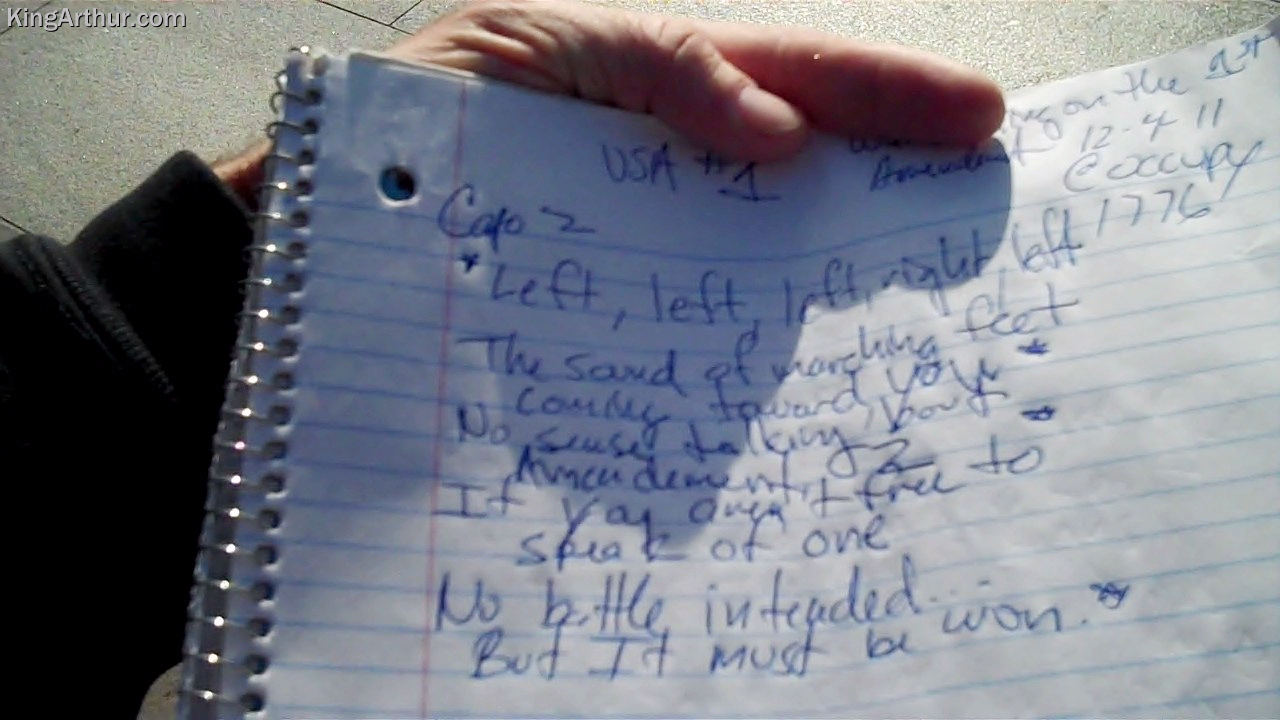 KingArthur.com
ing on the 1st
Amendment 12-4 11
USA #1
@occupy
Capo 2
1776
*Left, left, left, right, left
The sound of marching feet
Coming toward you *
No sense talking bout
Amendment 2 *
If you aren't free to
speak of one
No battle intended...
But It must be won. *